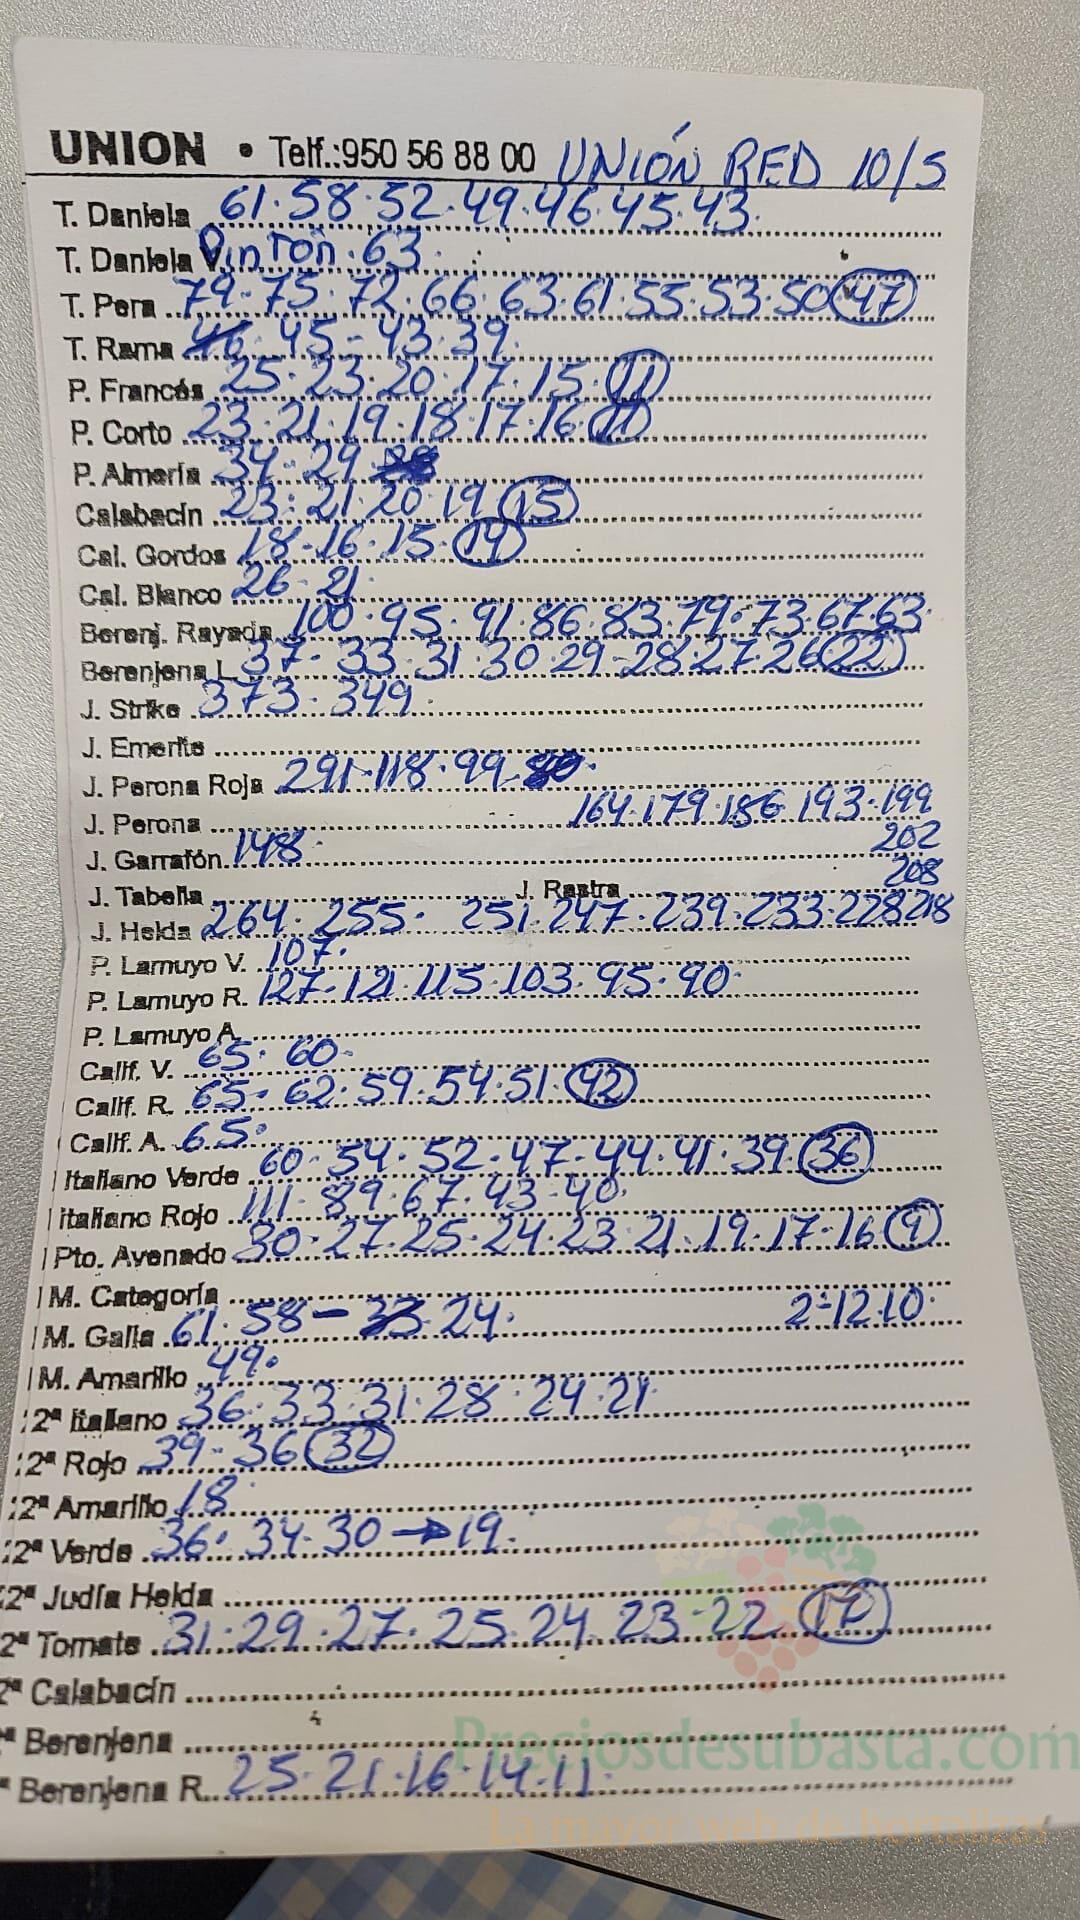 UNION • Telf.:950 56 88 00 UNIÓN RED 10/5
T. Daniela 61·58·52·49·46·45·43·
T. Daniela Pintón·63·
T. Pera 79·75·72·66·63·61·55·53·50 47
T. Rama 46·45-43·39·
P. Francés 25·23·20·17·15· 11
P. Corto 23·21·19·18·17·16 11
P. Almería 34·29
Calabacín 23·21·20·19 15
Cal. Gordos 18·16·15· 14
Cal. Blanco 26·21·
Berenj. Rayada 100·95·91·86·83·79·73·67·63·
Berenjena L. 37·33·31·30·29-28·27·26 22
J. Strike 373·349·
J. Emerite
J. Perona Roja 291·118·99·
J. Perona 164·179·186·193·199
J. Garrafón 148· 202
208
J. Tabella J. Rastra
J. Helda 264·255· 251·247·239·233·228 218
P. Lamuyo V. 107·
P. Lamuyo R. 127·121·115·103·95·90·
P. Lamuyo A.
Calif. V. 65·60·
Calif. R. 65·62·59·54·51· 42
Calif. A. 65·
Italiano Verde 60·54·52·47·44·41·39· 36
Italiano Rojo 111·89·67·43·40·
Pto. Avenado 30·27·25·24·23·21·19·17·16 9
M. Categoría
M. Galia 61·58- 33 24· 2ª-12·10·
M. Amarillo 49·
2ª Italiano 36·33·31·28·24·21·
2ª Rojo 39-36 32
2ª Amarillo 18·
2ª Verde 36·34·30→19·
2ª Judía Helda
2ª Tomate 31·29·27·25·24·23·22 17
2ª Calabacín
ª Berenjena
Preciosdesubasta.com
ª Berenjena R. 25·21·16·14·11·
La mayor web de hortalizas